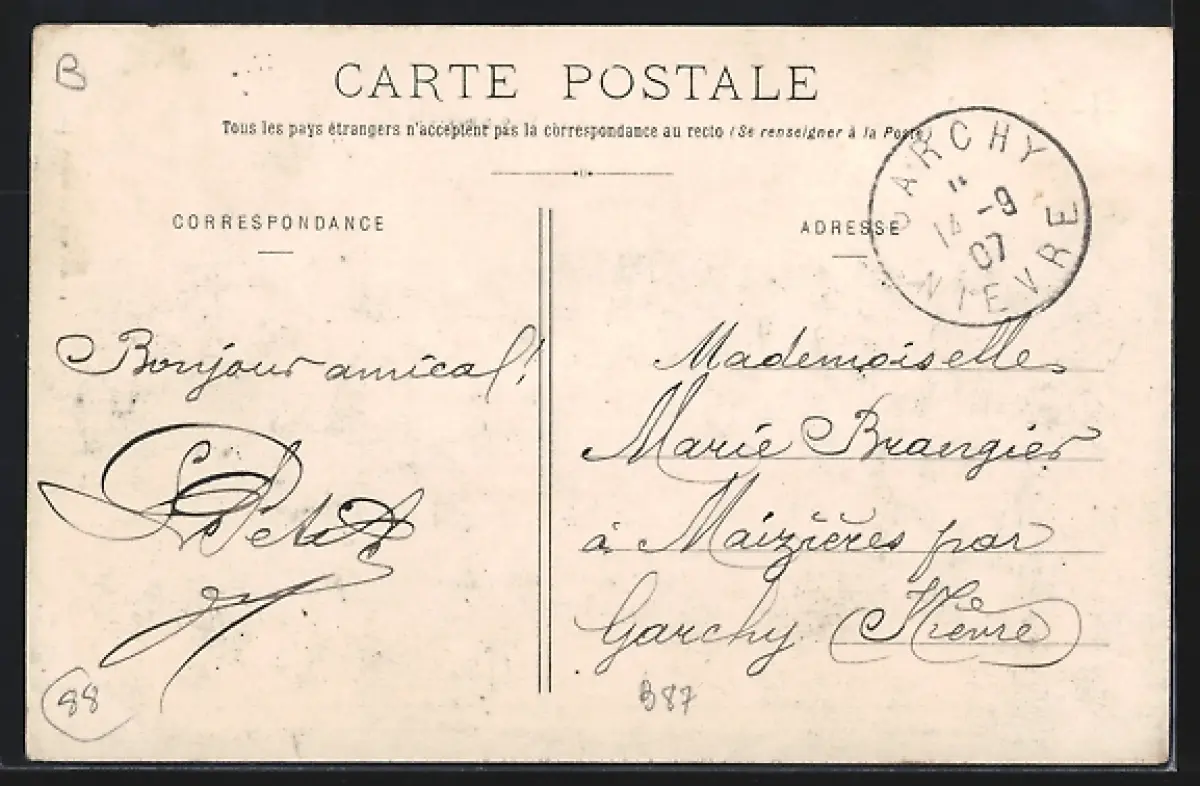 B
CARTE POSTALE
Tous les pays étrangers n'acceptent pas la correspondance au recto (Se renseigner à la Poste)
GARCHY
14 -9
07
NIEVRE
CORRESPONDANCE
ADRESSE
Bonjour amical!
Petit
Mademoiselle
Marie Brangier
à Maizières par
Garchy (Nièvre)
88
B87